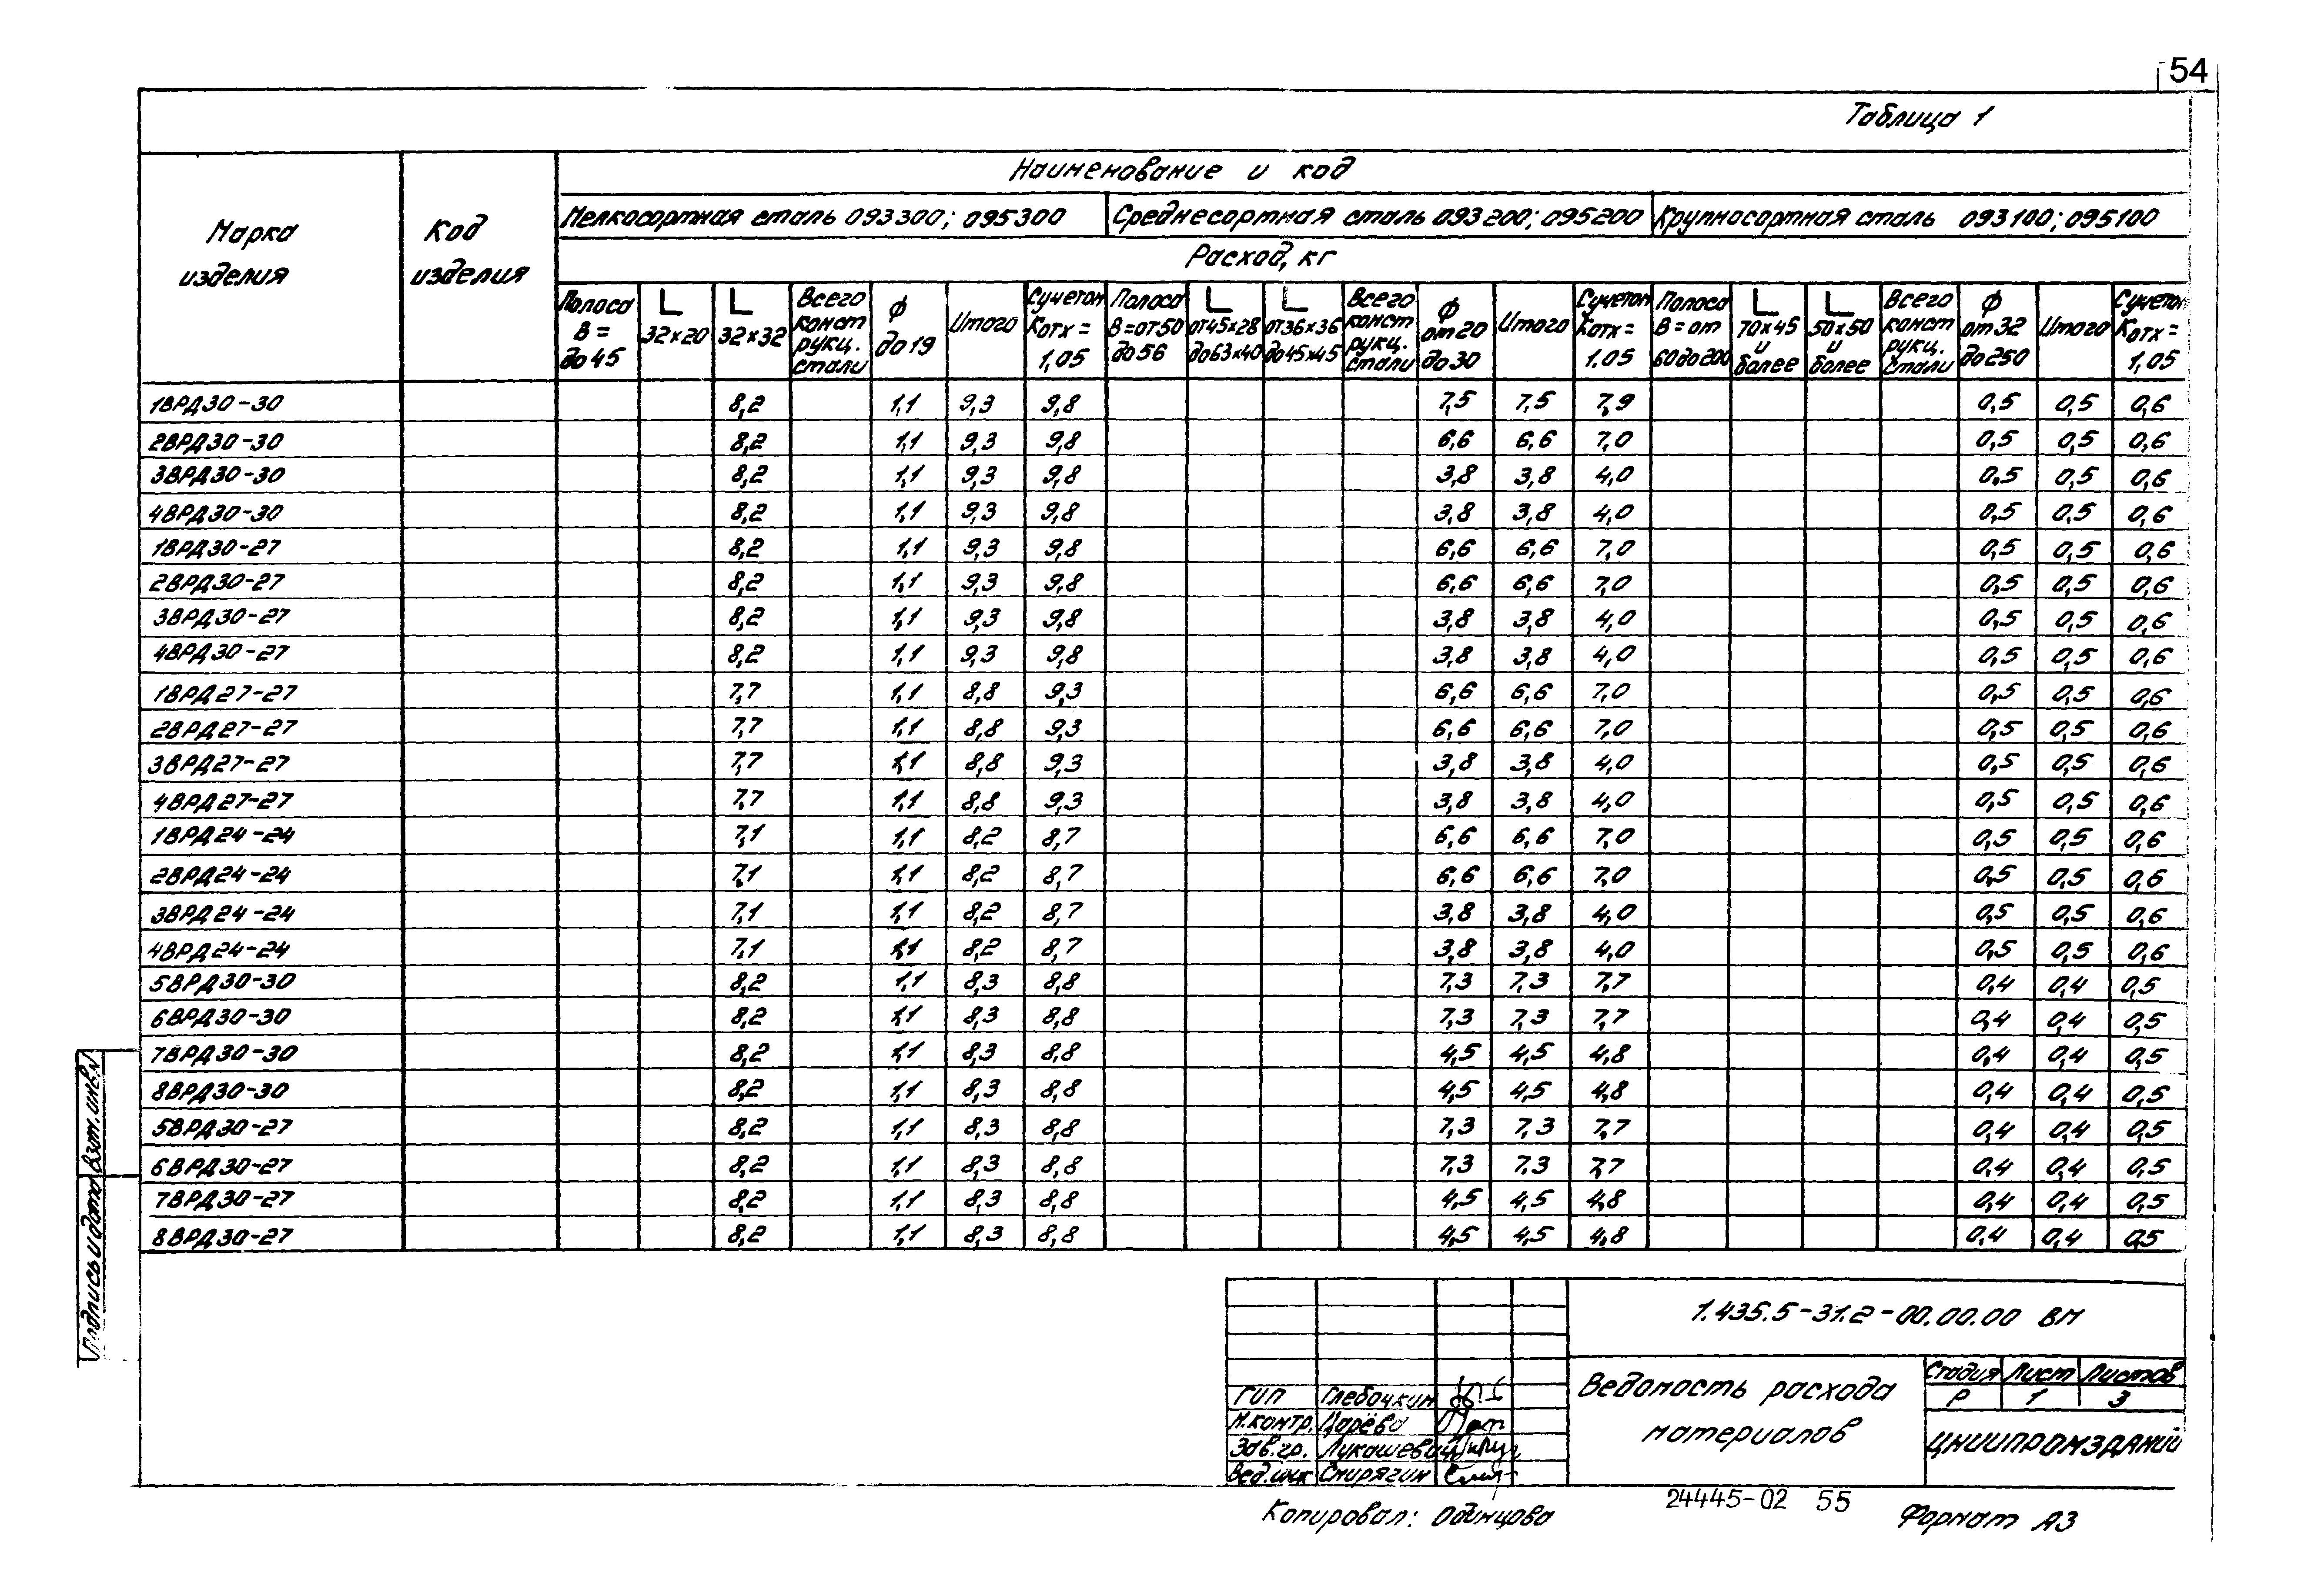 54
Таблица 1
Марка изделия
Код изделия
Наименование и код
Мелкосортная сталь 093300; 095300
Среднесортная сталь 093200; 095200
Крупносортная сталь 093100; 095100
Расход, кг
Полоса В= до 45
L 32×20
L 32×32
Всего конст рукц. стали
Ф до 19
Итого
С учетом Котх = 1,05
Полоса В=от 50 до 56
L от 45×28 до 63×40
L от 36×36 до 45×45
Всего конст рукц. стали
Ф от 20 до 30
Итого
С учетом Котх = 1.05
Полоса В=от 60 до 200
L 70×45 и более
L 50×50 и более
Всего конст рукц. стали
Ф от 32 до 250
Итого
С учетом Котх = 1,05
1ВРД30-30 8,2 1,1 9,3 9,8 7,5 7,5 7,9 0,5 0,5 0,6
2ВРД30-30 8,2 1,1 9,3 9,8 6,6 6,6 7,0 0,5 0,5 0,6
3ВРД30-30 8,2 1,1 9,3 9,8 3,8 3,8 4,0 0,5 0,5 0,6
4ВРД30-30 8,2 1,1 9,3 9,8 3,8 3,8 4,0 0,5 0,5 0,6
1ВРД30-27 8,2 1,1 9,3 9,8 6,6 6,6 7,0 0,5 0,5 0,6
2ВРД30-27 8,2 1,1 9,3 9,8 6,6 6,6 7,0 0,5 0,5 0,6
3ВРД30-27 8,2 1,1 9,3 9,8 3,8 3,8 4,0 0,5 0,5 0,6
4ВРД30-27 8,2 1,1 9,3 9,8 3,8 3,8 4,0 0,5 0,5 0,6
1ВРД27-27 7,7 1,1 8,8 9,3 6,6 6,6 7,0 0,5 0,5 0,6
2ВРД27-27 7,7 1,1 8,8 9,3 6,6 6,6 7,0 0,5 0,5 0,6
3ВРД27-27 7,7 1,1 8,8 9,3 3,8 3,8 4,0 0,5 0,5 0,6
4ВРД27-27 7,7 1,1 8,8 9,3 3,8 3,8 4,0 0,5 0,5 0,6
1ВРД24-24 7,1 1,1 8,2 8,7 6,6 6,6 7,0 0,5 0,5 0,6
2ВРД24-24 7,1 1,1 8,2 8,7 6,6 6,6 7,0 0,5 0,5 0,6
3ВРД24-24 7,1 1,1 8,2 8,7 3,8 3,8 4,0 0,5 0,5 0,6
4ВРД24-24 7,1 1,1 8,2 8,7 3,8 3,8 4,0 0,5 0,5 0,6
5ВРД30-30 8,2 1,1 8,3 8,8 7,3 7,3 7,7 0,4 0,4 0,5
6ВРД30-30 8,2 1,1 8,3 8,8 7,3 7,3 7,7 0,4 0,4 0,5
7ВРД30-30 8,2 1,1 8,3 8,8 4,5 4,5 4,8 0,4 0,4 0,5
8ВРД30-30 8,2 1,1 8,3 8,8 4,5 4,5 4,8 0,4 0,4 0,5
5ВРД30-27 8,2 1,1 8,3 8,8 7,3 7,3 7,7 0,4 0,4 0,5
6ВРД30-27 8,2 1,1 8,3 8,8 7,3 7.3 7,7 0,4 0,4 0,5
7ВРД30-27 8,2 1,1 8,3 8,8 4,5 4,5 4,8 0,4 0,4 0,5
8ВРД30-27 8,2 1,1 8,3 8,8 4,5 4,5 4,8 0,4 0,4 0,5
Подпись и дата
Взам. инв.N
1.435.5-31.2-00.00.00 ВМ
ГИП Глебочкин
Н.контр. Царёва
Зав.гр. Лукашевич
Вед.инж Спирягин
Ведомость расхода
материалов
Стадия Лист Листов
Р 1 3
ЦНИИПРОМЗДАНИЙ
24445-02 55
Копировал: Одинцова
Формат А3